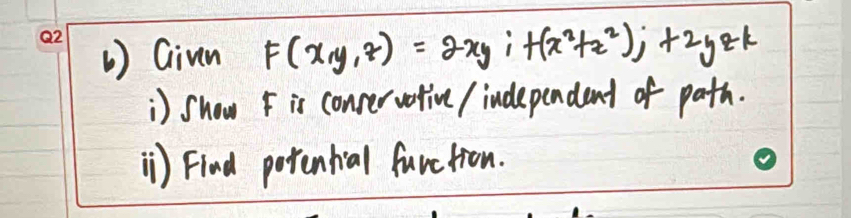 Q2
b) Given F(x,y,z) = 2xy i + (x²+z²)j + 2yzk
i) Show F is conservative/independent of path.
ii) Find potential function.